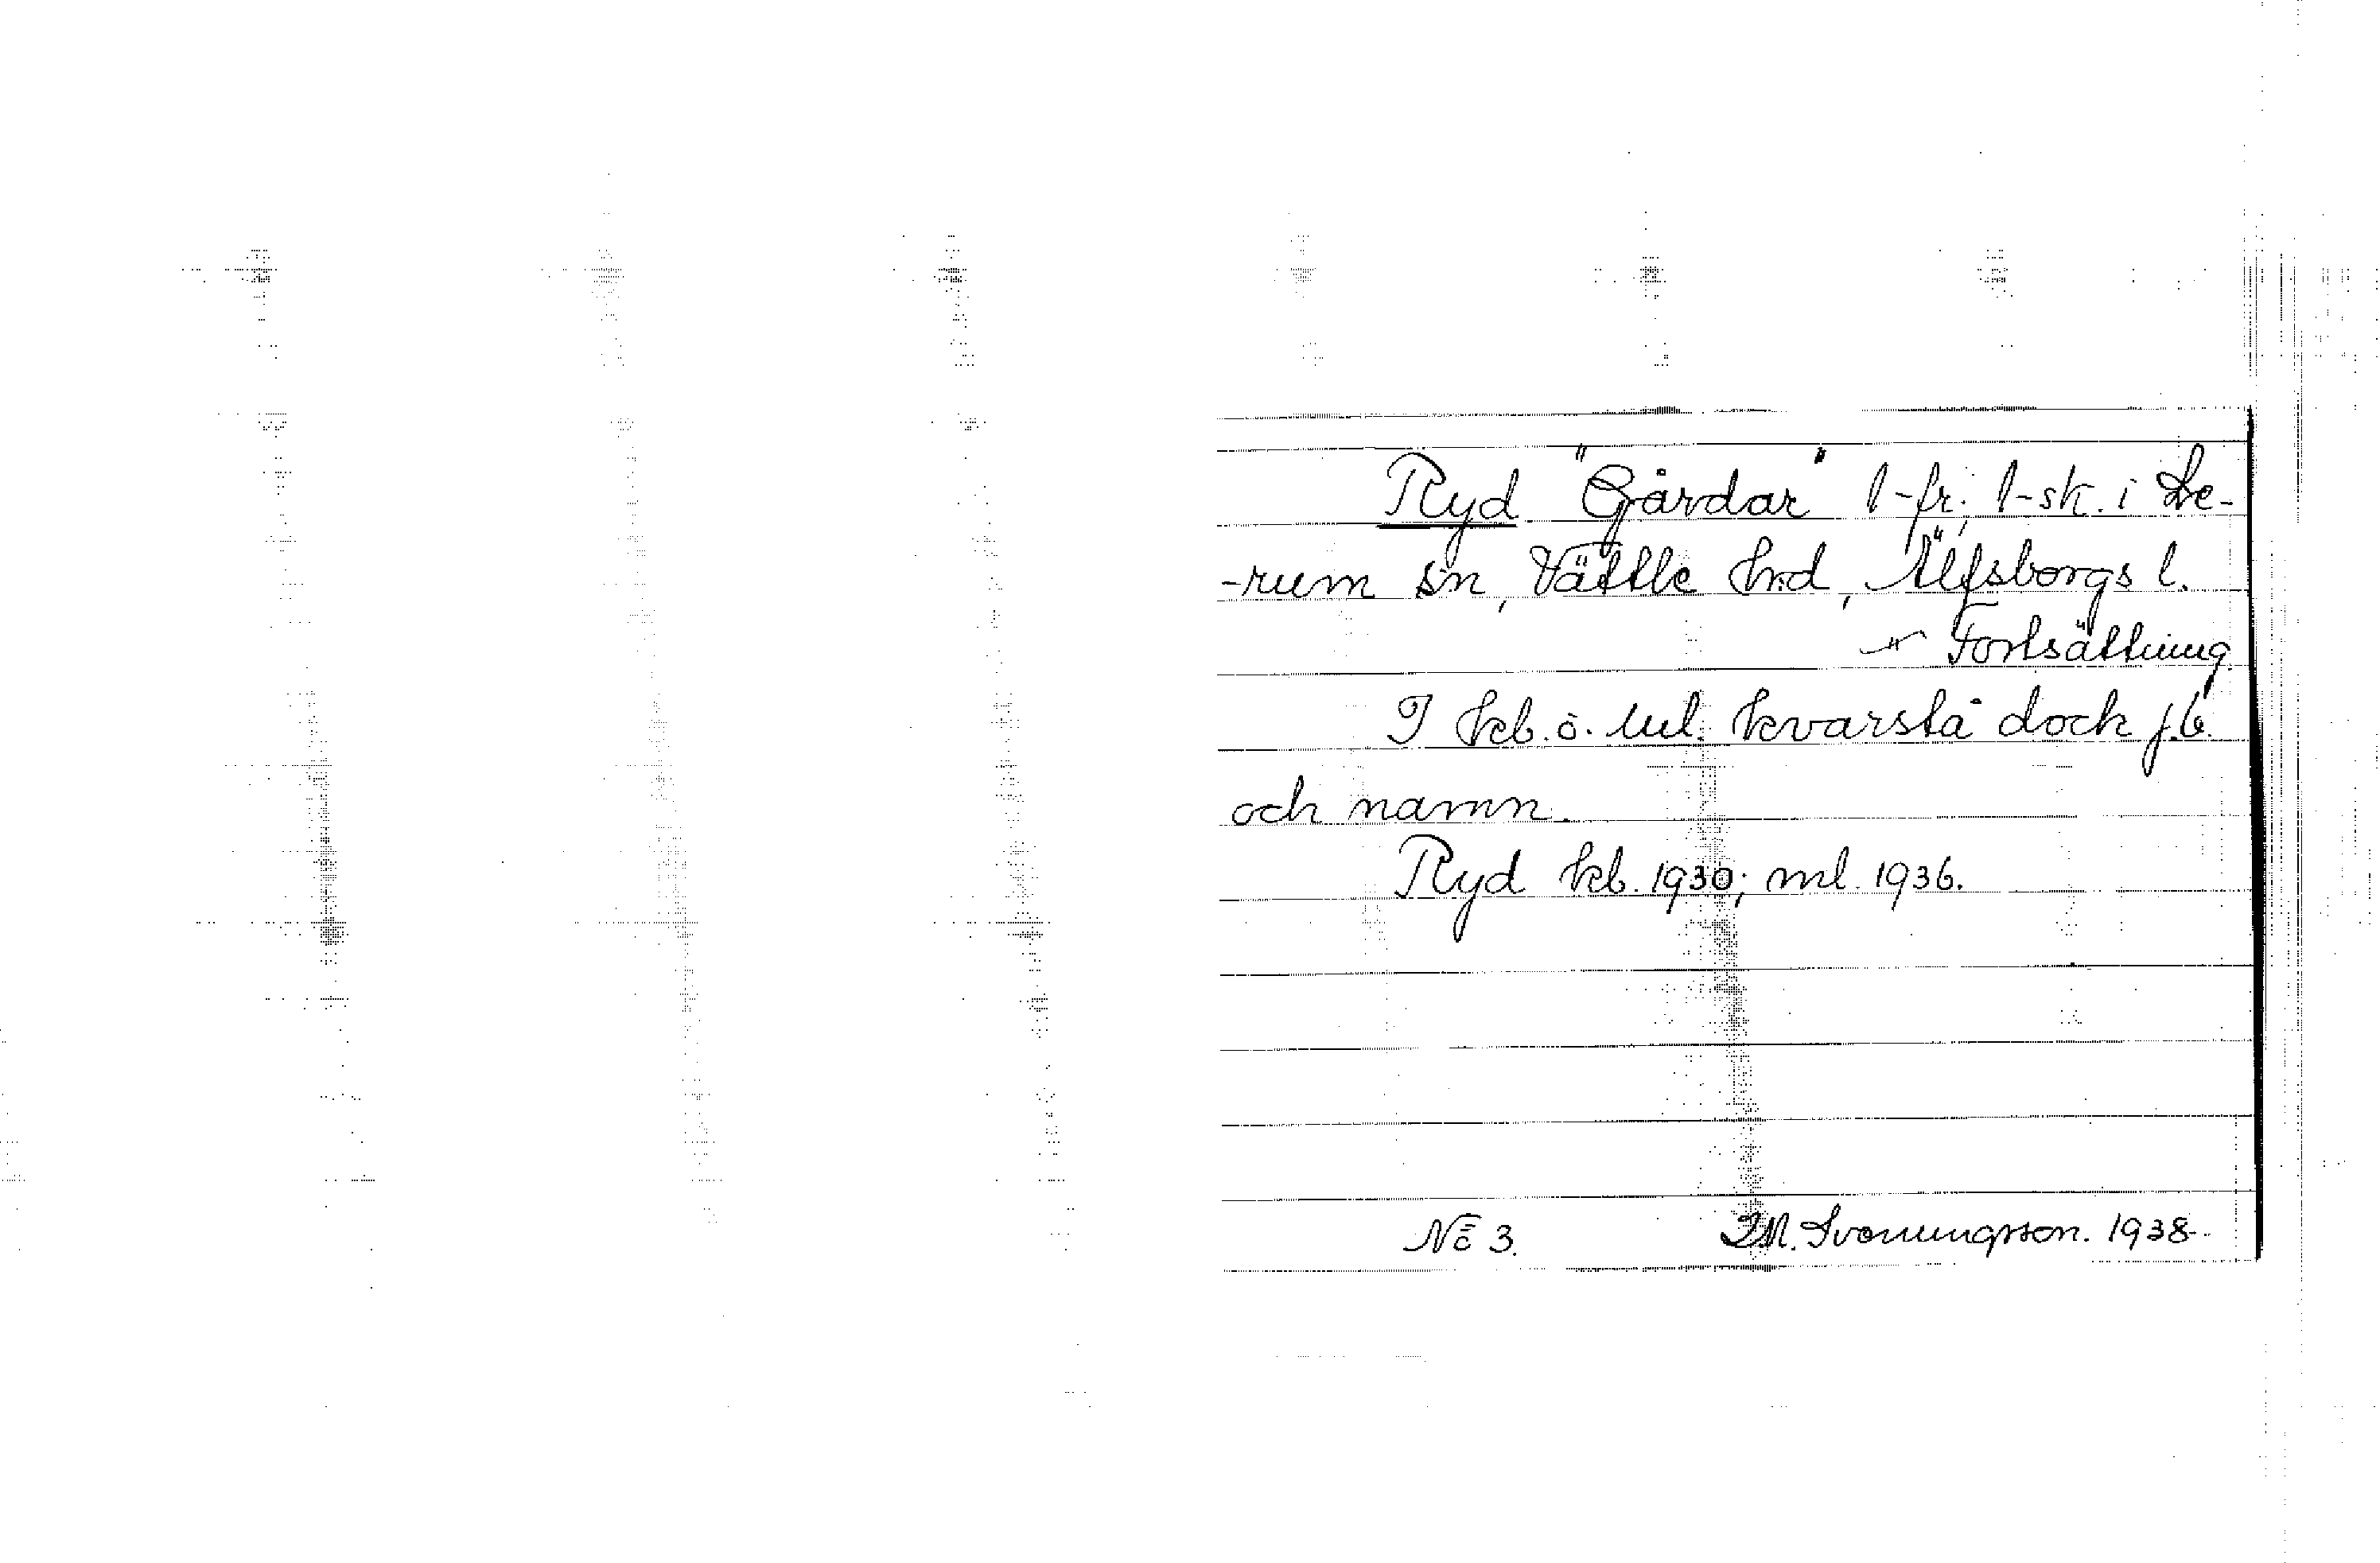 Ryd "Gårdar" 1-fr; 1-sk. i Le-
-rum sn, Vättle hrd, Älfsborgs l.
Fortsättning
I kb. o. ml. kvarstå dock j.b.
och namn.
Ryd kb. 1930; ml. 1936.
No 3. Svenungsson. 1938